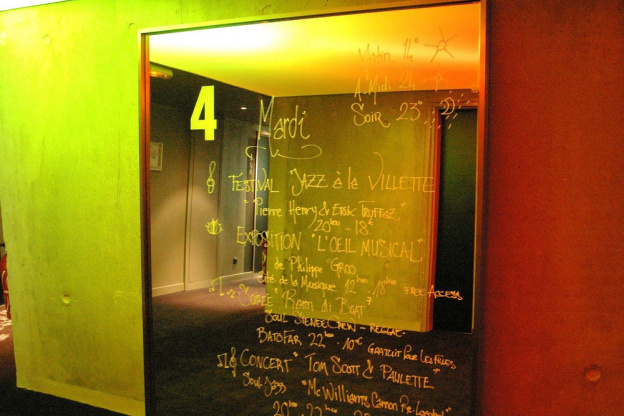 4
Mardi
Matin 14°
A. Midi 24
Soir 23°
Festival Jazz à la Villette
"Pierre Henry & Erik Truffaz"
20h00 - 18€
Exposition "L'OEIL MUSICAL"
de Philippe Groo
Cité de la Musique 12h00 18h00 Free Access
Soirée "Bam di Boat"
Soul Stereo Crew - Reggae
Batofar 22h00 - 10€ Gratuit Pour Les Filles
Concert "Tom Scott & Paulette
Soul Jazz "Mc Williams
20h00 22h00